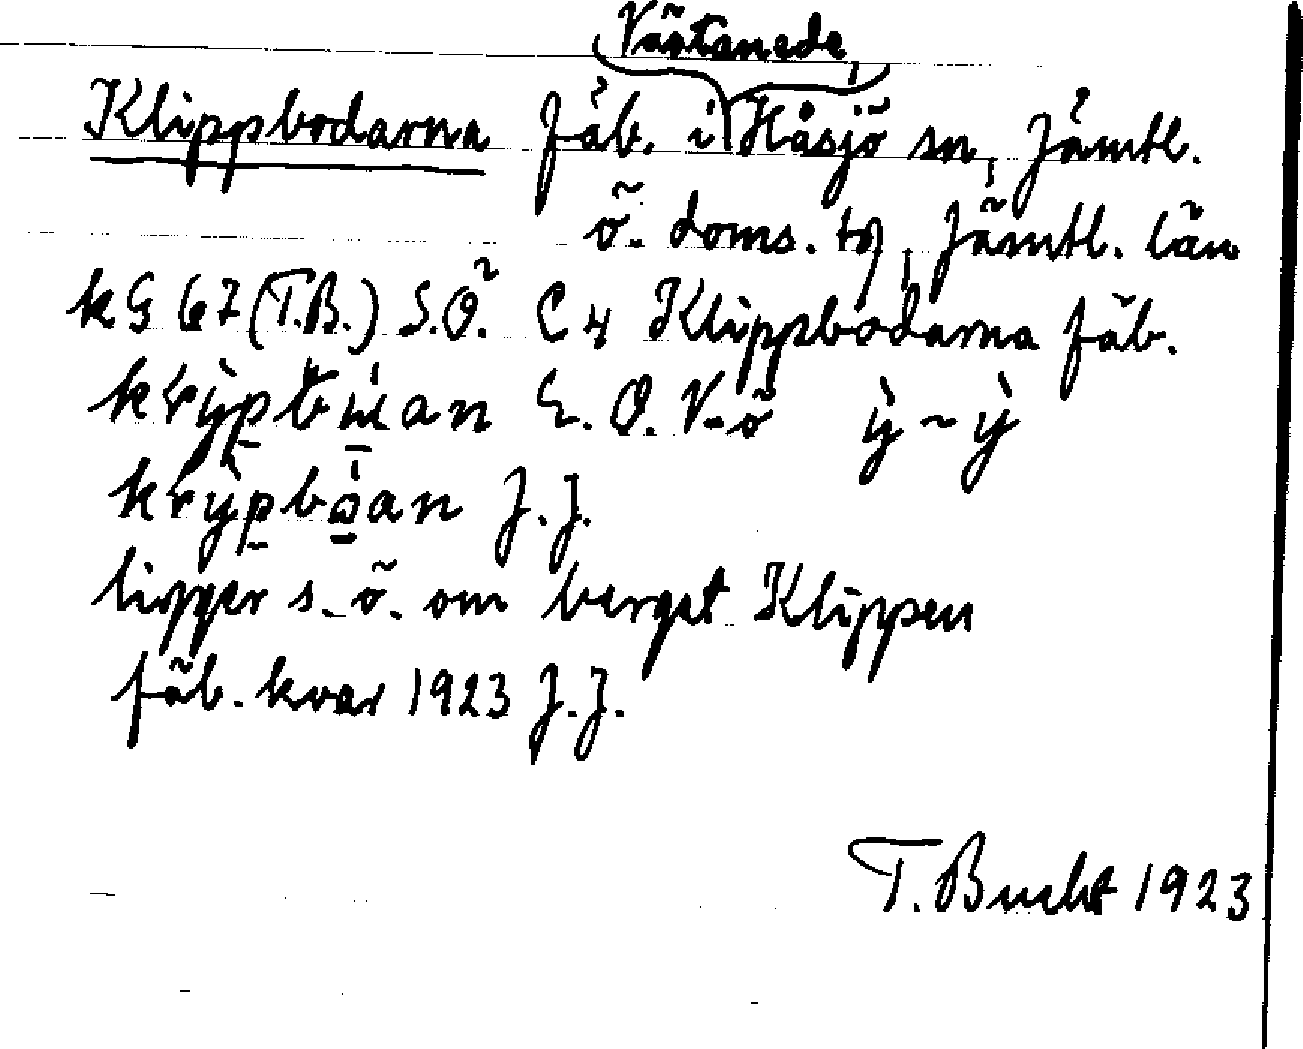 Västanede,
Klippbodarna fäb. i Håsjö sn, Jämtl.
ö. doms. tg, Jämtl. län
k G 67 (T.B.) S.O. C 4 Klippbodarna fäb.
E. O. V-ö ỳ ~ ỳ
J. J.
ligger s.ö. om berget Klippen
fäb. kvar 1923 J. J.
T. Bucht 1923